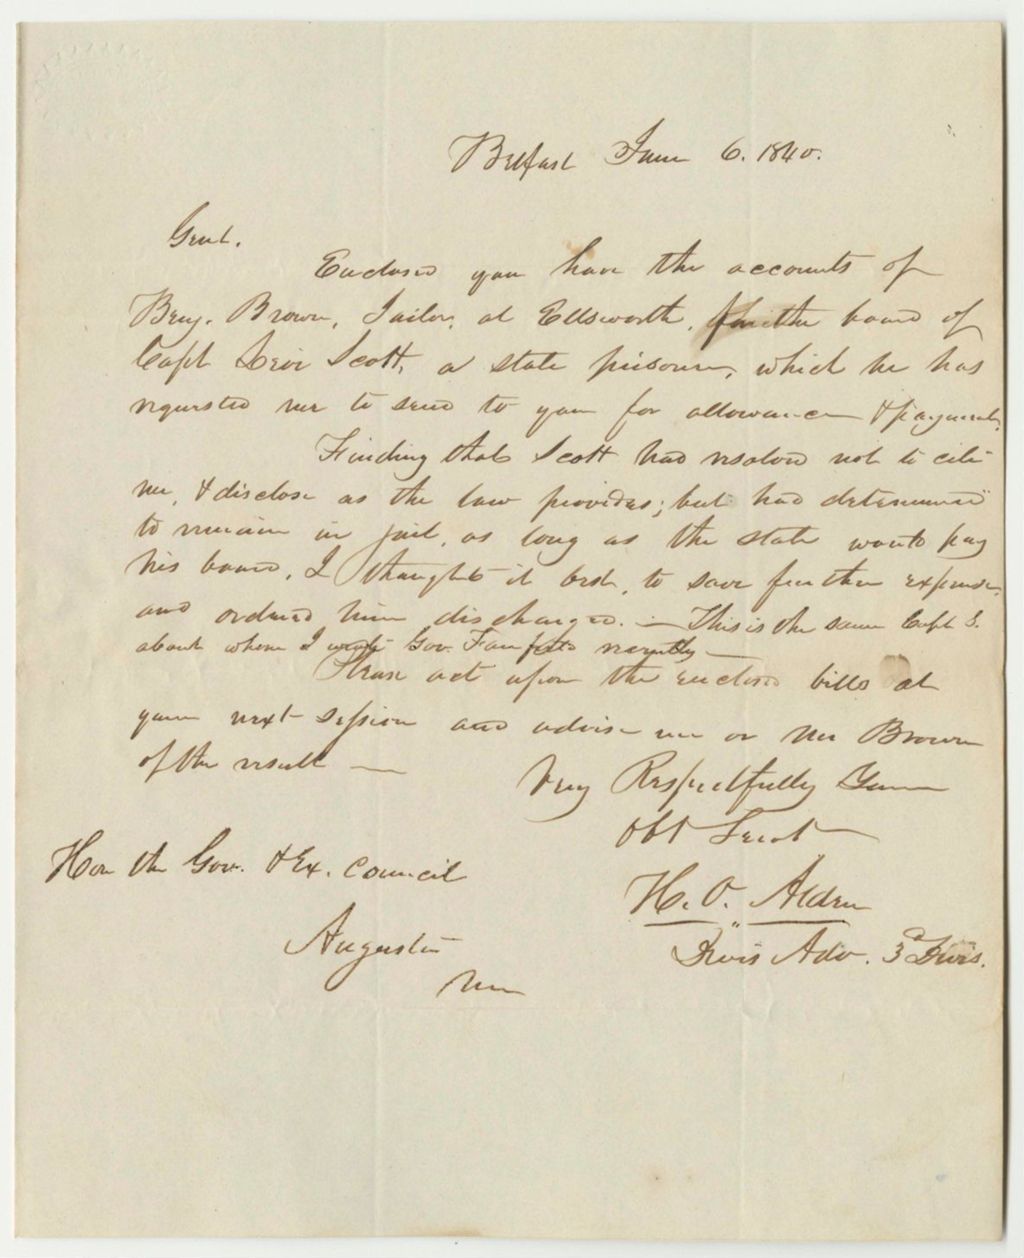 Belfast June 6. 1840.
Gent.
Enclosed you have the accounts of
Benj. Brown, Jailor, at Ellsworth, for the board of
Capt Levi Scott, a state prisoner, which he has
requested me to send to you for allowance & payment.
Finding that Scott had resolved not to cite
me, & disclose as the law provides; but had determined
to remain in jail, as long as the state would pay
his board, I thought it best, to save further expense,
and ordered him discharged. — This is the same Capt S.
about whom I wrote Gov. Fairfield recently —
Please act upon the enclosed bills at
your next session and advise me or Mr Brown
of the result —
Very Respectfully Your
Obt Servt
H. O. Alden
Divis Adv. 3d Divis.
Hon the Gov. & Ex. Council
Augusta
Me